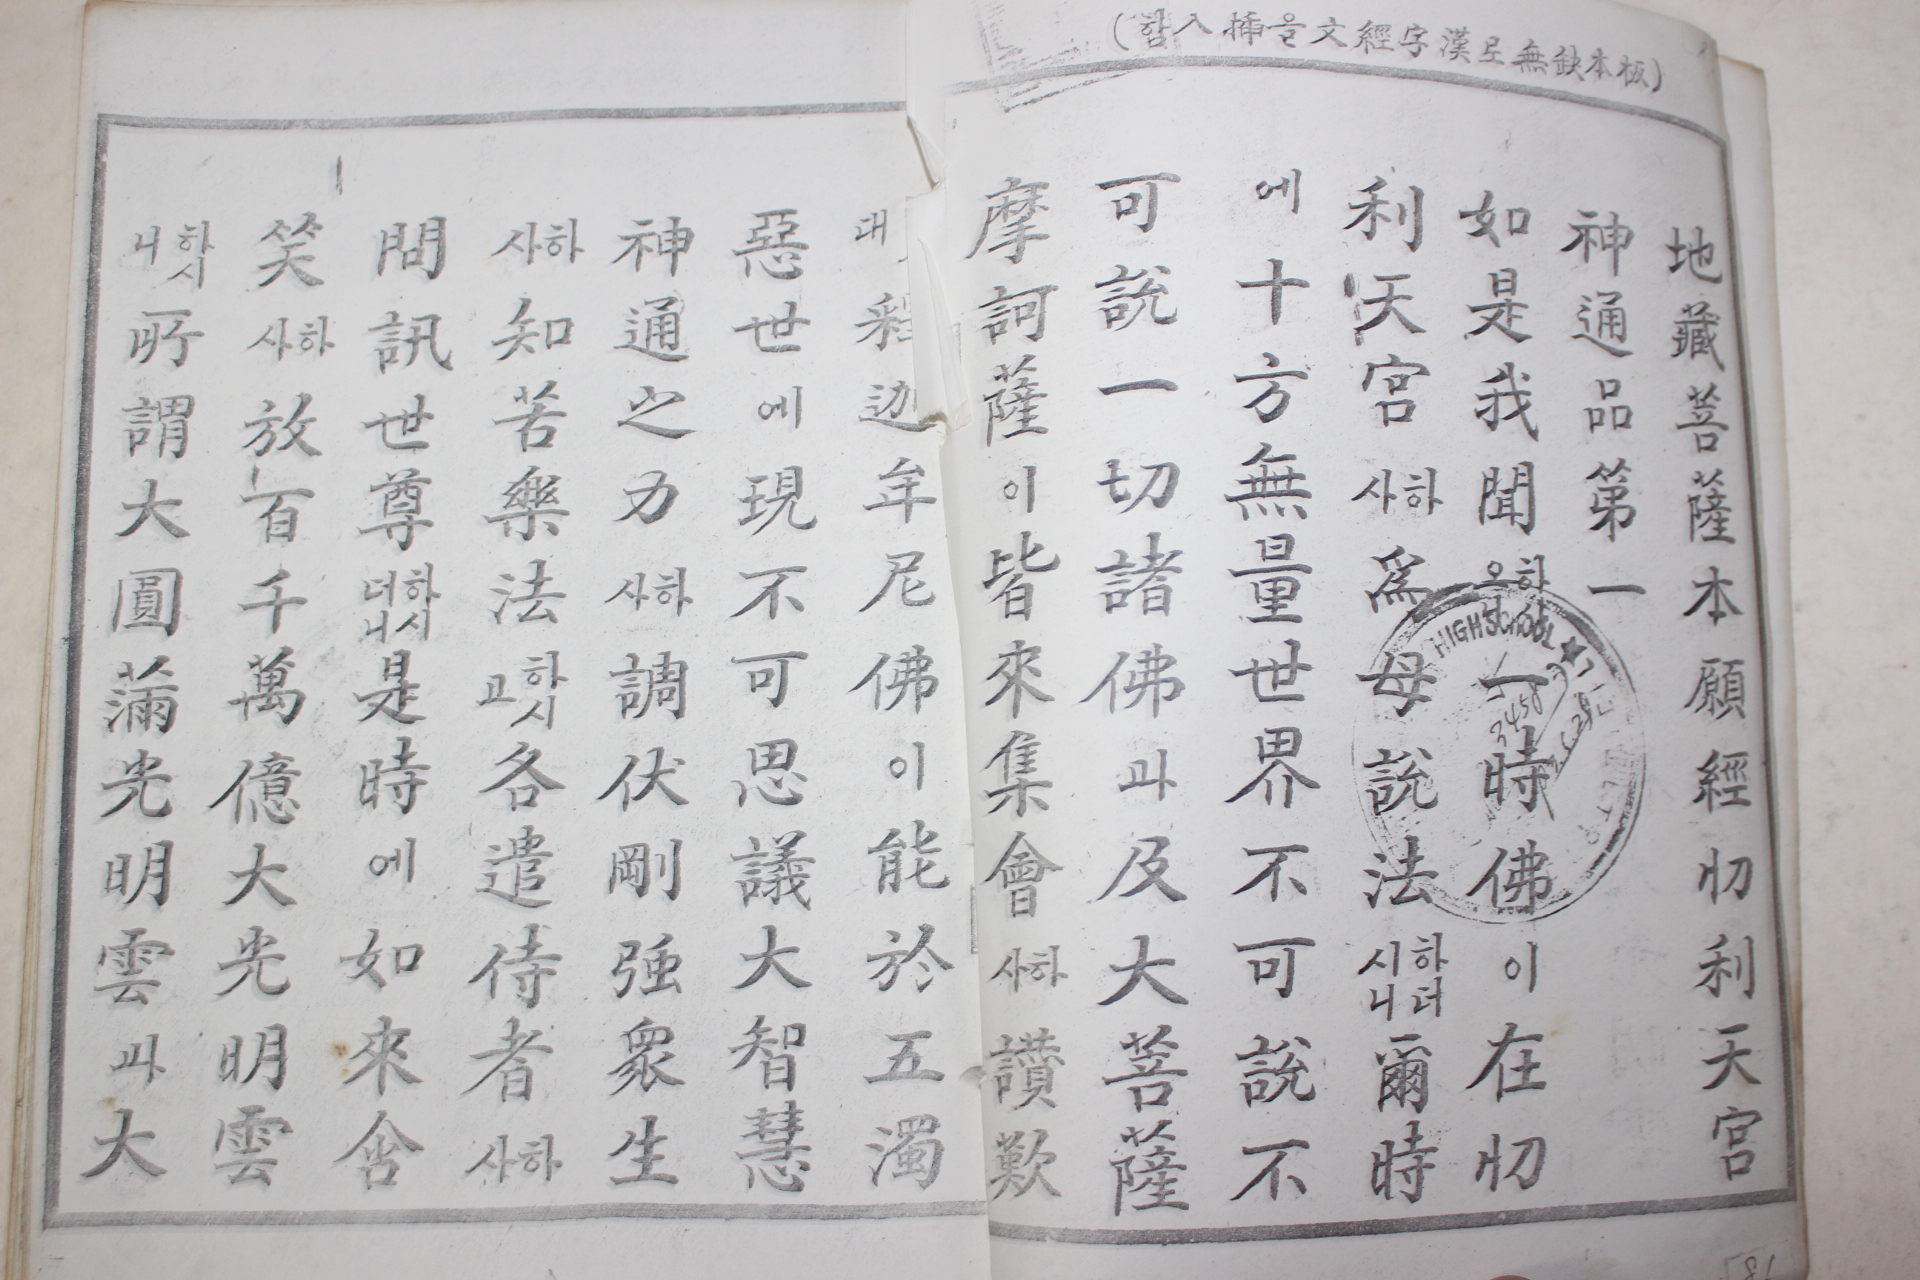 (板本缺無로漢字經文을揷入함)
地藏菩薩本願經忉利天宮
神通品第一
如是我聞하오니一時佛이在忉
利天宮하사爲母說法하더시니爾時
에十方無量世界不可說不
可說一切諸佛과及大菩薩
摩訶薩이皆來集會하사讚歎
대釋迦牟尼佛이能於五濁
惡世에現不可思議大智慧
神通之力하사調伏剛強衆生
하사知苦樂法하시고各遣侍者하사
問訊世尊하시더니是時에如來含
笑하사放百千萬億大光明雲
하시니所謂大圓滿光明雲과大
HIGH SCHOOL